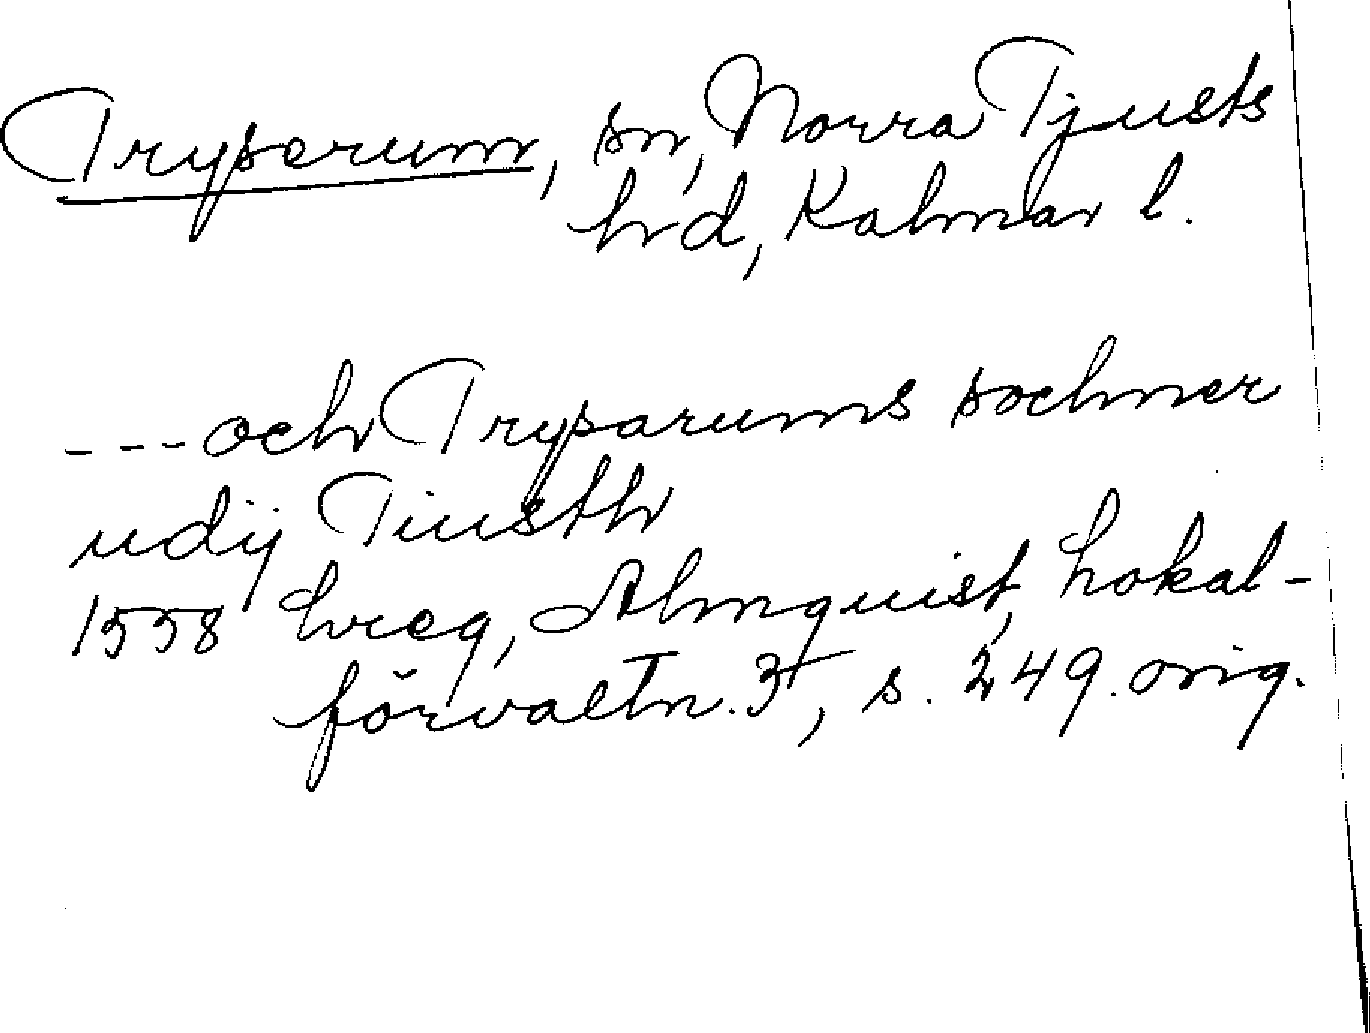 Tryserum, sn, Norra Tjusts
hd, Kalmar l.
---och Trysarums sochner
udij Tiusth
1558 hreg, Almquist, Lokal-
förvaltn. 3, s. 249. orig.